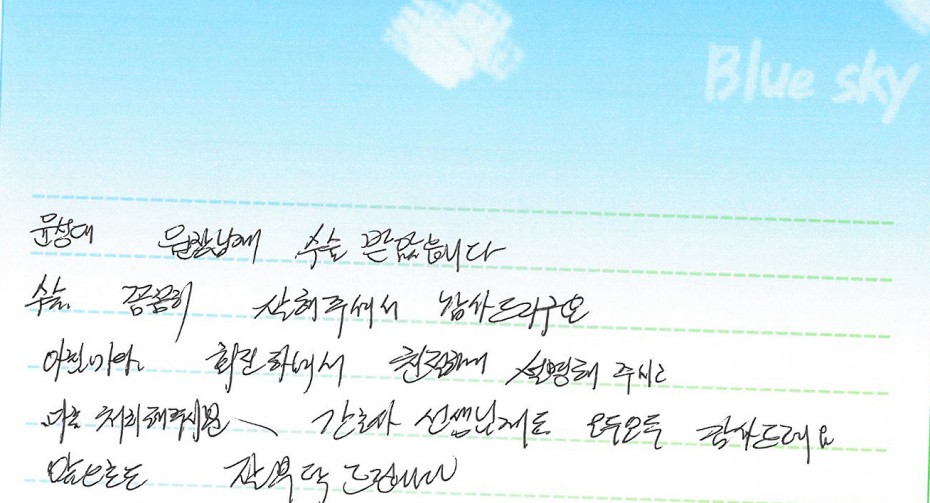 Blue sky
윤성대 원장님께 수술 받았습니다
수술 꼼꼼히 잘해주셔서 감사드리구요
아침마다 회진하면서 친절하게 설명해 주시고
바로 처리해주시고 간호사 선생님께도 모두모두 감사드려요
앞으로도 잘부탁드립니다